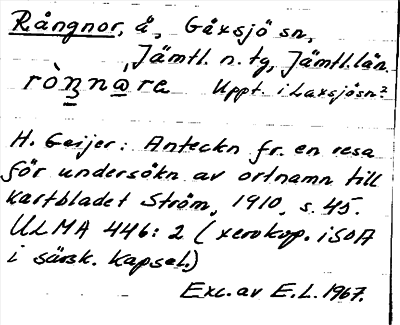 Rångnor, å, Gåxsjö sn,
Jämtl. n. tg, Jämtl. län.
ròn̲n@̲ra Uppt. i Laxsjösn?
H. Geijer: Anteckn fr. en resa
för undersökn av ortnamn till
kartbladet Ström, 1910, s. 45.
ULMA 446: 2 (xerokop. i SOA
i särsk. kapsel.)
Exc. av E.L. 1967.